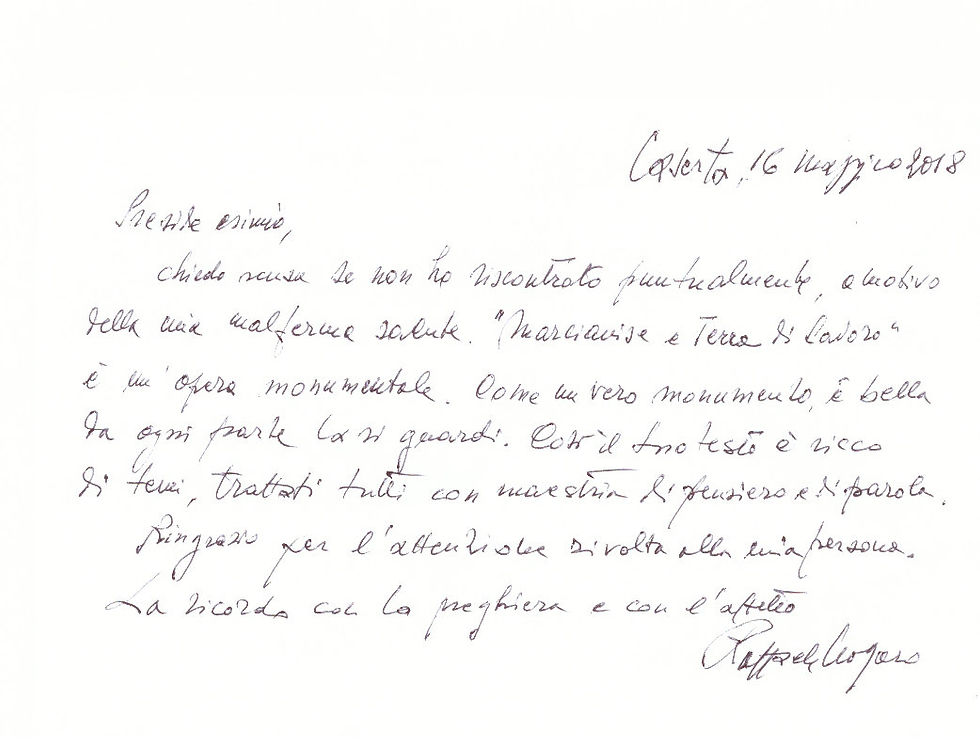 Caserta, 16 maggio 2018
Preside esimio,
chiedo scusa se non ho riscontrato puntualmente, a motivo
della mia malferma salute. "Marcianise e Terra di Lavoro"
è un'opera monumentale. Come un vero monumento, è bella
da ogni parte la si guardi. Così il suo testo è ricco
di temi, trattati tutti con maestria di pensiero e di parola.
Ringrazio per l'attenzione rivolta alla mia persona.
La ricordo con la preghiera e con l'affetto
Raffaele Nogaro